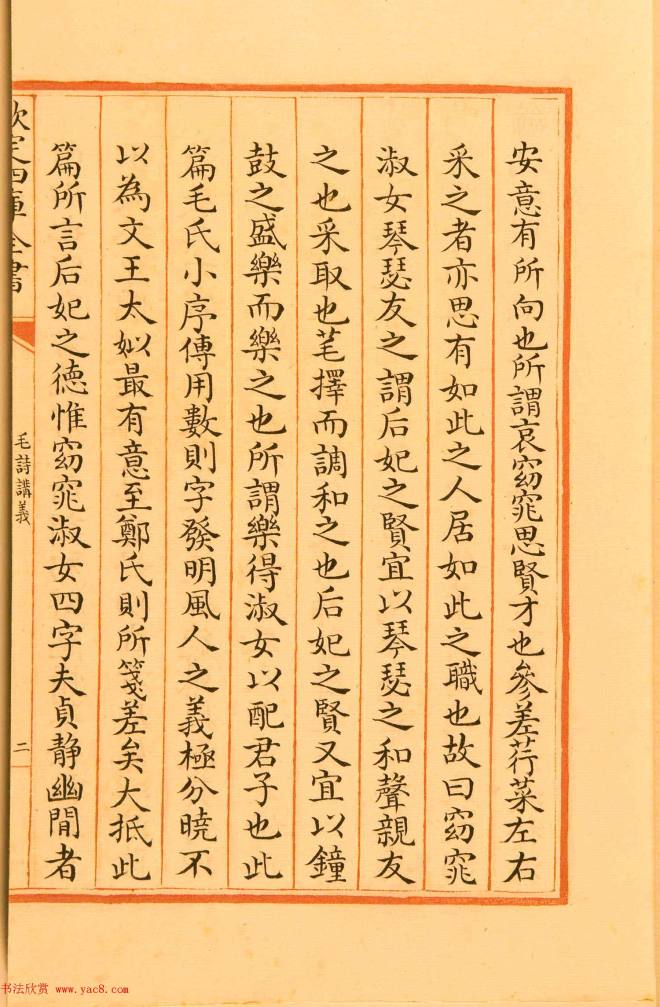 安意有所向也所謂哀窈窕思賢才也參差荇菜左右
采之者亦思有如此之人居如此之職也故曰窈窕
淑女琴瑟友之謂后妃之賢宜以琴瑟之和聲親友
之也采取也芼擇而調和之也后妃之賢又宜以鐘
鼓之盛樂而樂之也所謂樂得淑女以配君子也此
篇毛氏小序傳用數則字發明風人之義極分曉不
以為文王太姒最有意至鄭氏則所箋差矣大抵此
篇所言后妃之德惟窈窕淑女四字夫貞靜幽閒者
欽定四庫全書
毛詩講義
二
书法欣赏 www.yac8.com